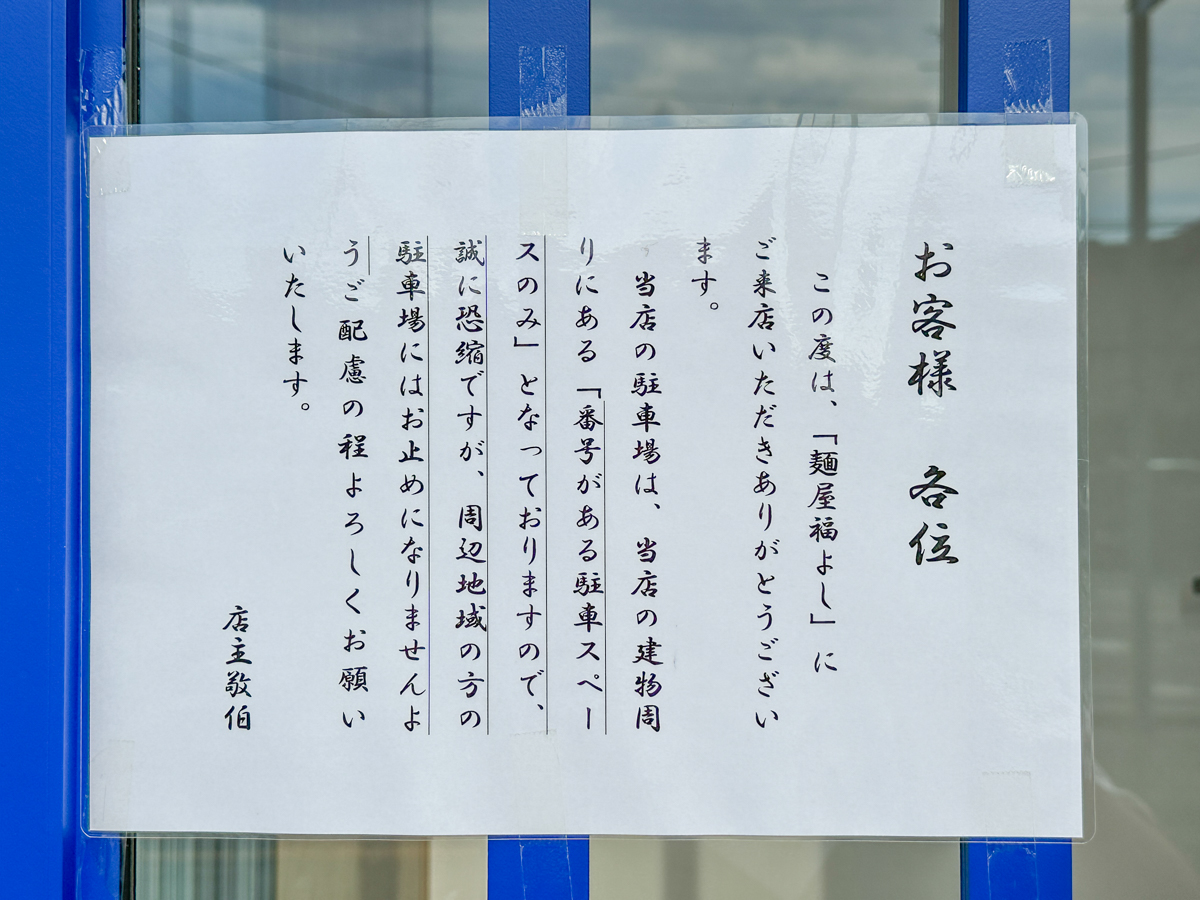 お客様　各位
この度は、「麺屋福よし」に
ご来店いただきありがとうござい
ます。
当店の駐車場は、当店の建物周
りにある「番号がある駐車スペー
スのみ」となっておりますので、
誠に恐縮ですが、周辺地域の方の
駐車場にはお止めになりませんよ
うご配慮の程よろしくお願い
いたします。
店主敬伯